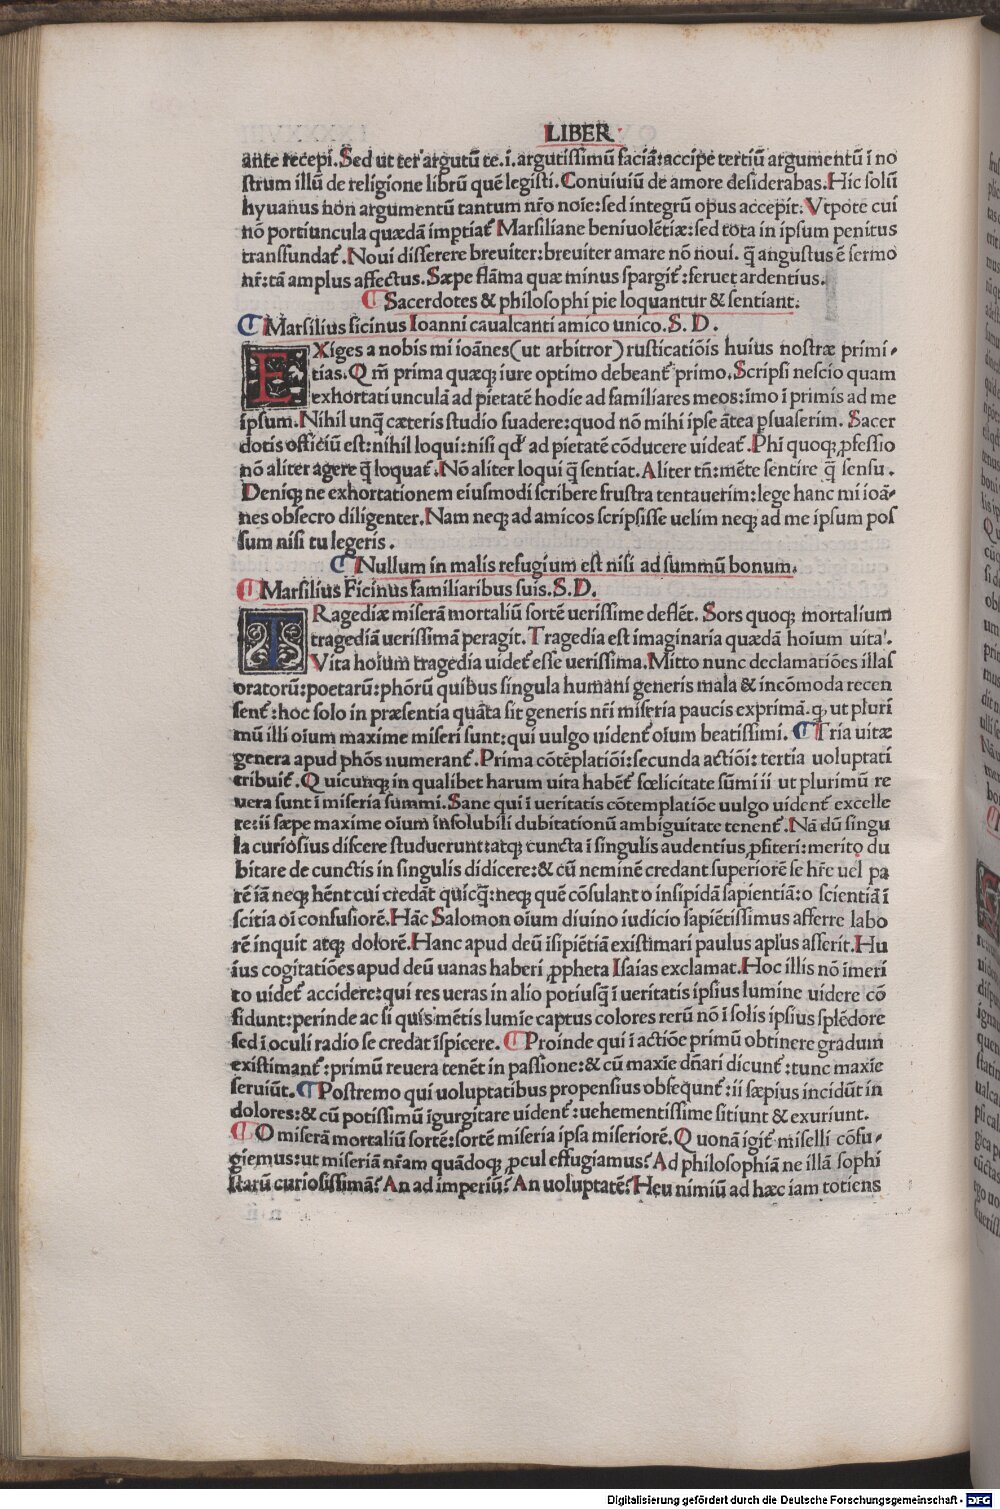 LIBER
ante recepi. Sed ut ter argutū te. i. argutissimū faciā: accipe tertiū argumentū ī no
strum illū de religione librū quē legisti. Conuiuiū de amore desiderabas. Hic solū
hyuanus non argumentū tantum nr̄o noīe: sed integrū opus accepit: Vtpote cui
nō portiuncula quædā imptiat̄ Marsiliane beniuolētiæ: sed tota in ipsum penitus
transfundat̄. Noui disserere breuiter: breuiter amare nō noui. q̄ angustus ē sermo
nr̄: tā amplus affectus. Sæpe flāma quæ minus spargit̄: feruet ardentius.
Sacerdotes & philosophi pie loquantur & sentiant.
Marsilius ficinus Ioanni caualcanti amico unico. S. D.
EXiges a nobis mi ioānes (ut arbitror) rusticatiōis huius nostræ primi-
tias. Qm̄ prima quæq; iure optimo debeant̄ primo. Scripsi nescio quam
exhortati unculā ad pietatē hodie ad familiares meos: imo ī primis ad me
ipsum. Nihil unq̄ cæteris studio suadere: quod nō mihi ipse ātea psuaserim. Sacer
dotis officiū est: nihil loqui: nisi qđ ad pietatē cōducere uideat̄. Phi quoq; ꝓfessio
nō aliter agere q̄ loquat̄. Nō aliter loqui q̄ sentiat. Aliter tn̄: mēte sentire q̄ sensu.
Deniq; ne exhortationem eiusmodi scribere frustra tentauerim: lege hanc mi ioā-
nes obsecro diligenter. Nam neq; ad amicos scripsisse uelim neq; ad me ipsum pos
sum nisi tu legeris.
Nullum in malis refugium est nisi ad summū bonum.
Marsilius Ficinus familiaribus suis. S. D.
TRagediæ miserā mortaliū sortē uerissime deflēt. Sors quoq; mortalium
tragediā uerissimā peragit. Tragedia est imaginaria quædā hoium uita.
Vita hoium tragedia uidet̄ esse uerissima. Mitto nunc declamatiōes illas
oratorū: poetarū: phōrū quibus singula humani generis mala & incōmoda recen
sent̄: hoc solo in præsentia quāta sit generis nr̄i miseria paucis exprimā. q; ut pluri
mū illi oium maxime miseri sunt: qui uulgo uident̄ oium beatissimi. Tria uitæ
genera apud phōs numerant̄. Prima cōtēplatiōi: secunda actiōi: tertia uoluptati
tribuit̄. Quicunq; in qualibet harum uita habēt̄ fœlicitate sūmi ii ut plurimū re
uera sunt ī miseria summi. Sane qui ī ueritatis cōtemplatiōe uulgo uident̄ excelle
re: ii sæpe maxime oium insolubili dubitationū ambiguitate tenent̄. Nā dū singu
la curiosius discere studuerunt: atq; cuncta ī singulis audentius ꝓfiteri: merito du
bitare de cunctis in singulis didicere: & cū neminē credant superiorē se hr̄e uel pa
rē iā neq; hēnt cui credāt quicq̄: neq; quē cōsulant o insipidā sapientiā: o scientiā ī
scitia oī confusiorē. Hāc Salomon oium diuino iudicio sapiētissimus afferre labo
rē inquit atq; dolorē. Hanc apud deū īsipiētiā existimari paulus apl'us asserit. Hu
ius cogitatiōes apud deū uanas haberi ꝓpheta Isaias exclamat. Hoc illis nō īmeri
to uidet̄ accidere: qui res ueras in alio potiusq̄ ī ueritatis ipsius lumine uidere cō
fidunt: perinde ac si quis mētis lumīe captus colores rerū nō ī solis ipsius splēdore
sed ī oculi radio se credat īspicere. Proinde qui ī actiōe primū obtinere gradum
existimant̄: primū reuera tenēt in passione: & cū maxīe dn̄ari dicunt̄: tunc maxīe
seruiūt. Postremo qui uoluptatibus propensius obsequnt̄: ii sæpius incidūt in
dolores: & cū potissimū īgurgitare uident̄: uehementissime sitiunt & exuriunt.
O miserā mortaliū sortē: sortē miseria ipsa miseriorē. Quonā igit̄ miselli cōfu-
giemus: ut miseriā nr̄am quādoq; ꝓcul effugiamus? Ad philosophiā ne illā sophi
starū curiosissimā? An ad imperiū? An uoluptatē? Heu nimiū ad hæc iam totiens
Digitalisierung gefördert durch die Deutsche Forschungsgemeinschaft - DFG